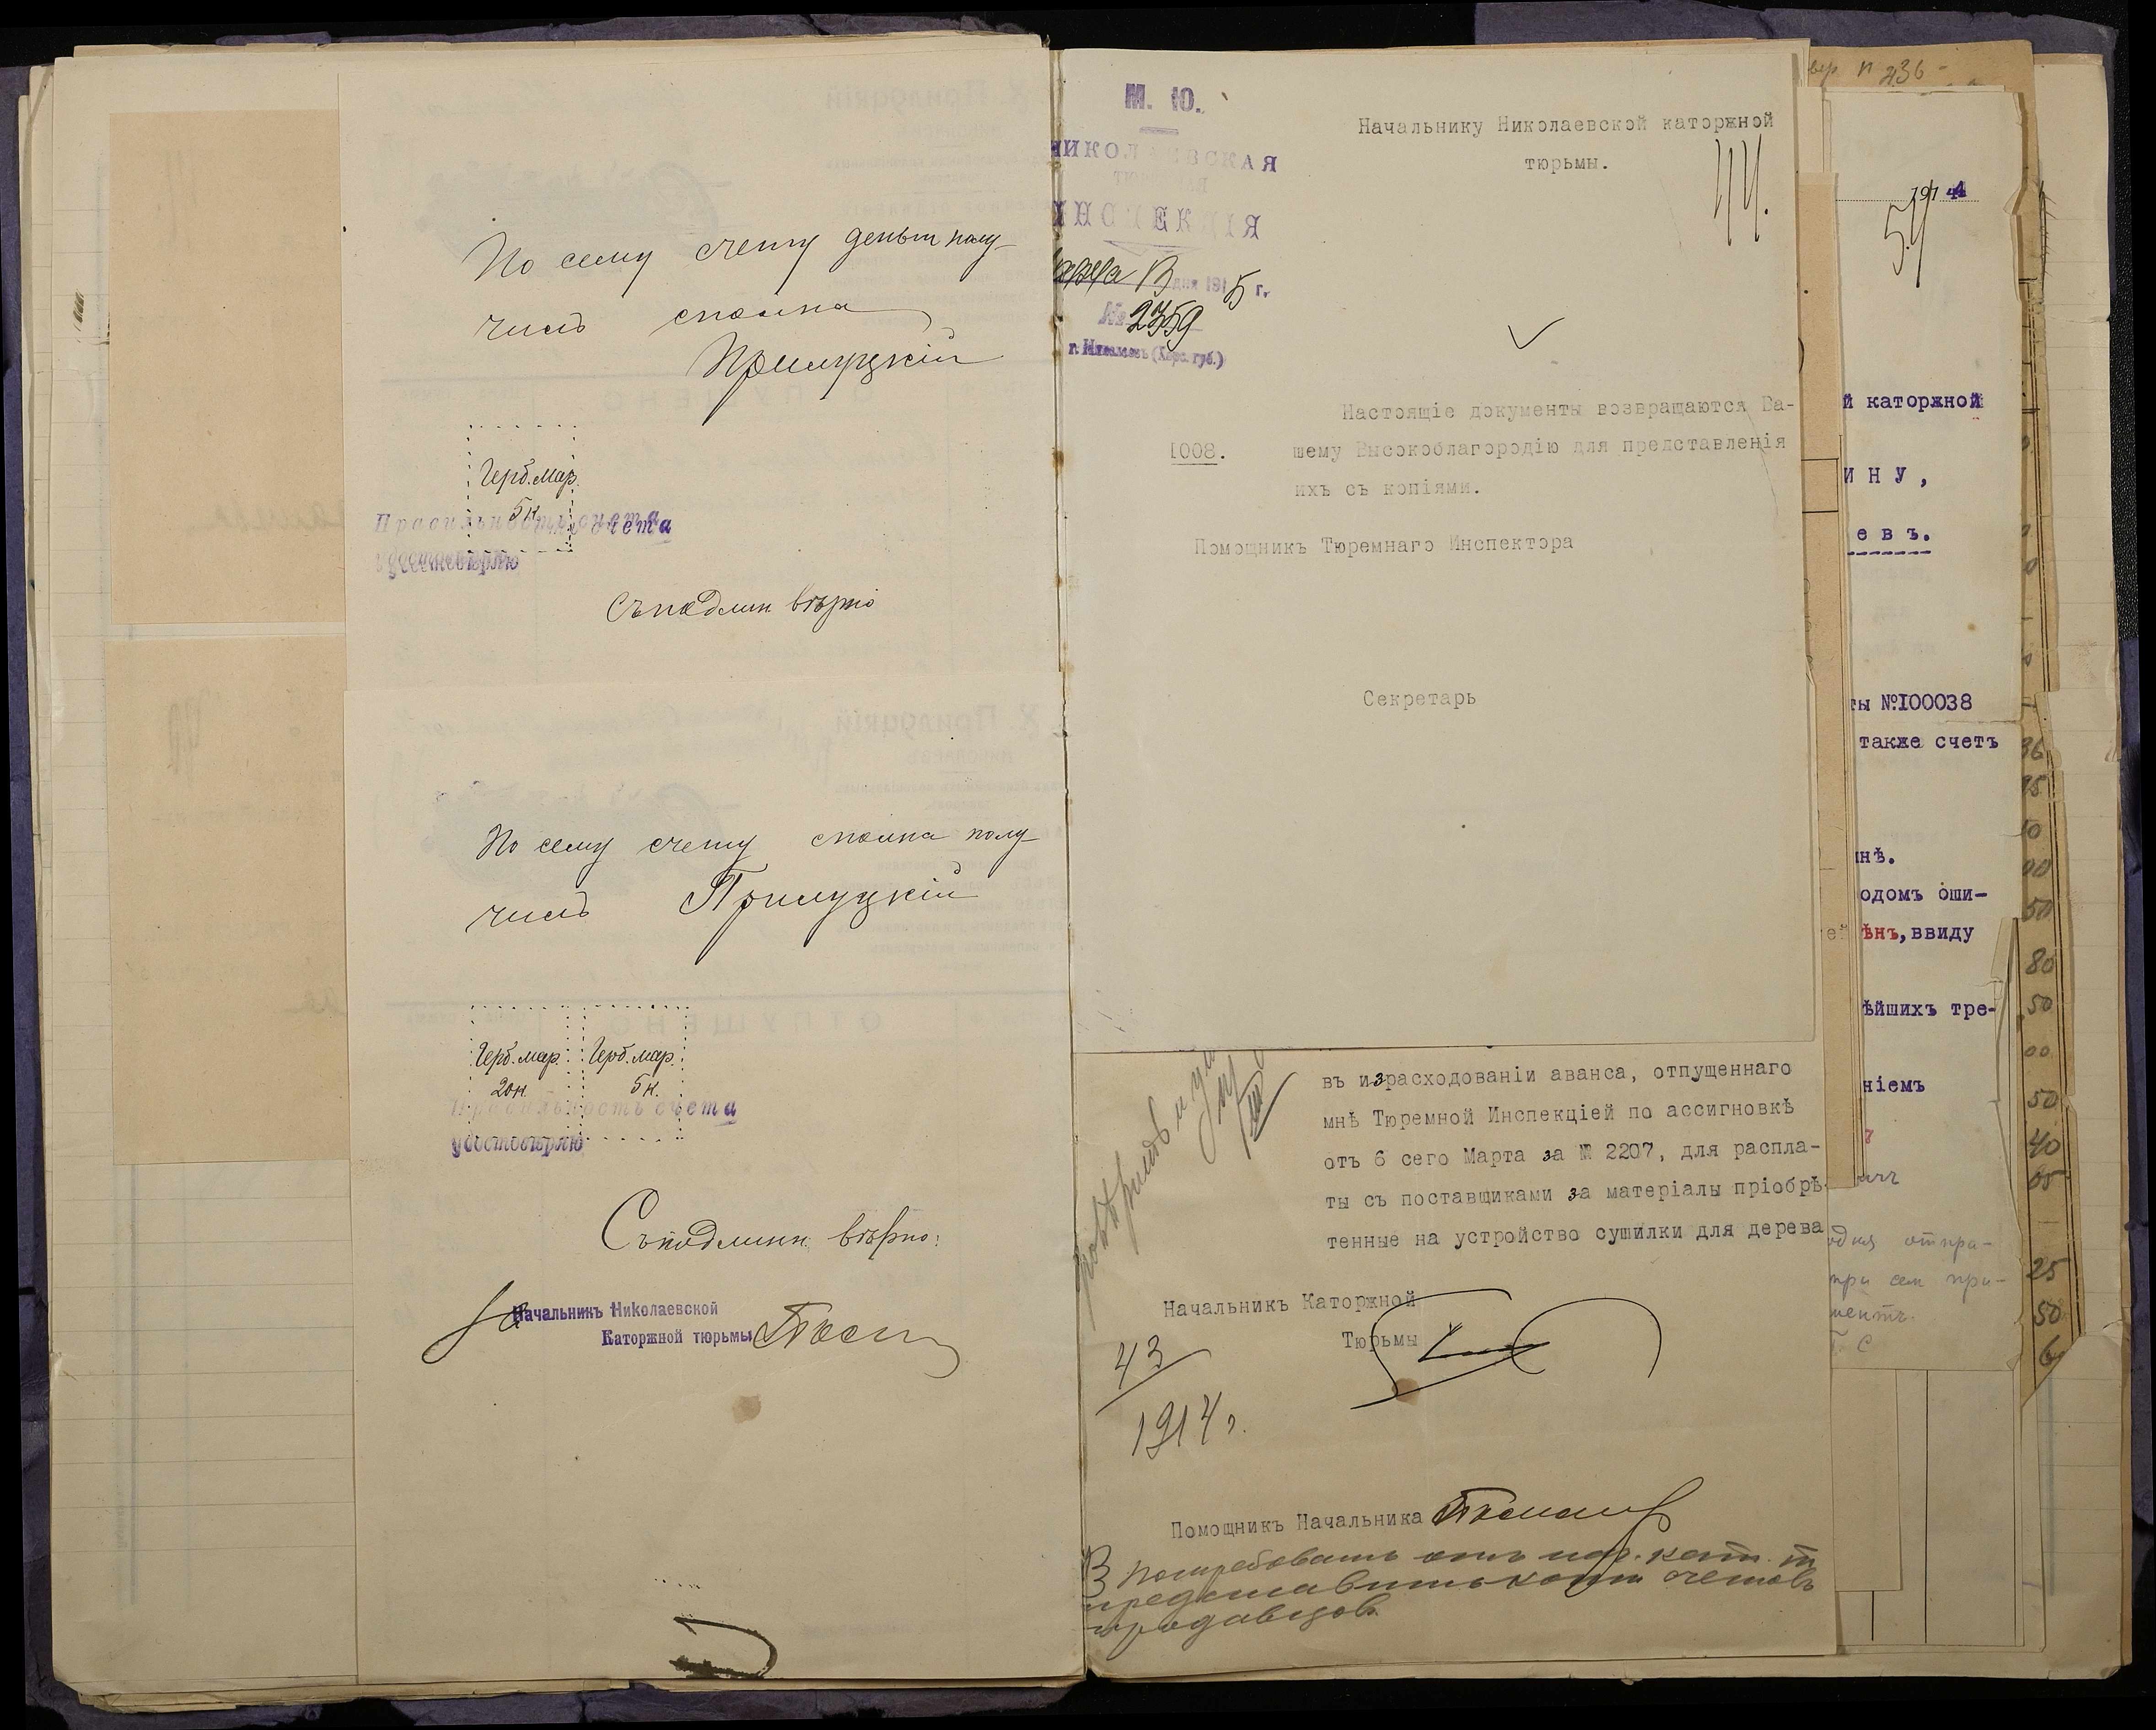 По сему счету деньги полу-
чилъ сполна
Прилуцкій
Герб. мар.
5 к.
Правильность счета
удостовѣряю
Съ подлин вѣрно
По сему счету сполна полу-
чилъ Прилуцкій
Герб. мар. Герб. мар.
20 к. 5 к.
Правильность счета
удостовѣряю
Съ подлин. вѣрно:
За Начальникъ Николаевской
Каторжной тюрьмы
М. Ю.
НИКОЛАЕВСКАЯ
ИНСПЕКЦІЯ
Марта 13 дня 1915 г.
№ 2359
г. Николаевъ (Херс. губ.)
Начальнику Николаевской каторжной
тюрьмы.
44.
Настоящіе документы возвращаются Ва-
1008. шему Высокоблагородію для представленія
ихъ съ копіями.
Помощникъ Тюремнаго Инспектора
Секретарь
въ израсходованіи аванса, отпущеннаго
мнѣ Тюремной Инспекціей по ассигновкѣ
отъ 6 сего Марта за № 2207, для распла-
ты съ поставщиками за матеріалы пріобрѣ-
тенные на устройство сушилки для дерева
Начальникъ Каторжной
Тюрьмы
43
1914 г.
Помощникъ Начальника
Потребовать отъ нач. кат. т.
представить копіи счетовъ
продавцовъ.
вер N 236-
1914
54
й каторжной
ИНУ,
евъ.
ты №100038
также счетъ
инѣ.
одомъ оши-
ѣнъ, ввиду
ѣйшихъ тре-
ніемъ
одня отпра-
при сем при-
ментъ.
36
95
00
50
80
50
00
50
40
05
25
50
6